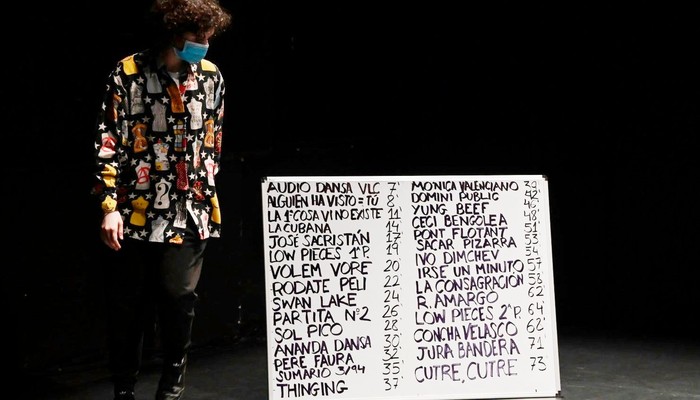 AUDIO DANSA VLC 7'
ALGUIEN HA VISTO = TÚ 8'
LA 1ª COSA VI NO EXISTE 11'
LA CUBANA 14'
JOSÉ SACRISTÁN 17'
LOW PIECES 1ª P. 19'
VOLEM VORE 20
RODATE PELI 22
SWAN LAKE 24
PARTITA Nº2 26
SOL PICO 28
ANANDA DANSA 30'
PERE FAURA 32'
SUMARIO 3/94 35'
THINGING 37'
MONICA VALENCIANO 39'
DOMINI PUBLIC 42'
YUNG BEEF 45'
CECI BENGOLEA 48'
PONT FLOTANT 51'
SACAR PIZARRA 53
IVO DIMCHEV 54
IRSE UN MINUTO 57
LA CONSAGRACIÓN 58
R. AMARGO 62
LOW PIECES 2ª P. 64'
CONCHA VELASCO 62'
JURA BANDERA 71'
CUTRE, CUTRE 73'